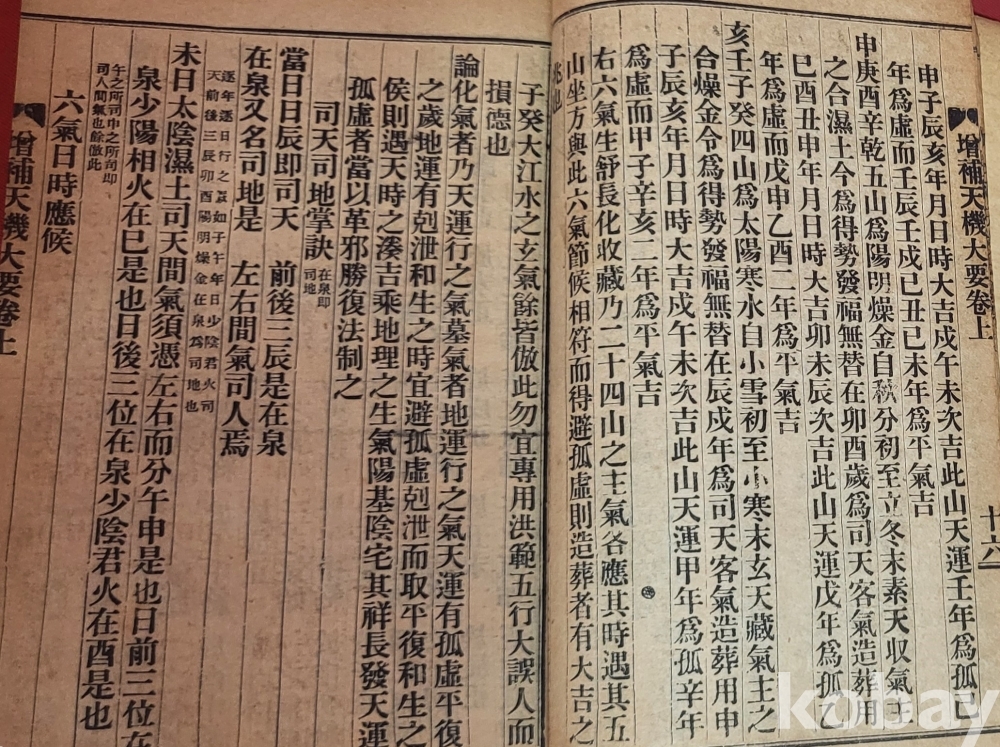 增補天機大要卷上
十六
申子辰亥年月日時大吉戌午未次吉此山天運壬年爲孤己
年爲虛而壬辰壬戌己丑己未年爲平氣吉
申庚酉辛乾五山爲陽明燥金自秋分初至立冬末素天收氣主
之合濕土令爲得勢發福無替在卯酉歲爲司天客氣造葬用
巳酉丑申年月日時大吉卯未辰次吉此山天運戊年爲孤乙
年爲虛而戊申乙酉二年爲平氣吉
亥壬子癸四山爲太陽寒水自小雪初至小寒末玄天藏氣主之
合燥金令爲得勢發福無替在辰戌年爲司天客氣造葬用申
子辰亥年月日時大吉戌午未次吉此山天運甲年爲孤辛年
爲虛而甲子辛亥二年爲平氣吉
右六氣生舒長化收藏乃二十四山之主氣各應其時遇其五
山坐方與此六氣節候相符而得避孤虛則造葬者有大吉之
兆也
子癸大江水之玄氣餘皆倣此勿宜專用洪範五行大誤人而
損德也
論化氣者乃天運行之氣墓氣者地運行之氣天運有孤虛平復
之歲地運有剋泄和生之時宜避孤虛剋泄而取平復和生之
侯則遇天時之湊吉乘地理之生氣陽基陰宅其祥長發天運
孤虛者當以革邪勝復法制之
司天司地掌訣 在泉即司地
當日日辰即司天 前後三辰是在泉
在泉又名司地是 左右間氣司人焉
逐年逐日行之如子午年日少陰君火司
天前後三辰卯酉陽明燥金在泉爲司地也
未日太陰濕土司天間氣須憑左右而分午申是也日前三位在
泉少陽相火在巳是也日後三位在泉少陰君火在酉是也
午之所司申之所司即
司人間氣也餘倣此
六氣日時應候
增補天機大要卷上
kobay